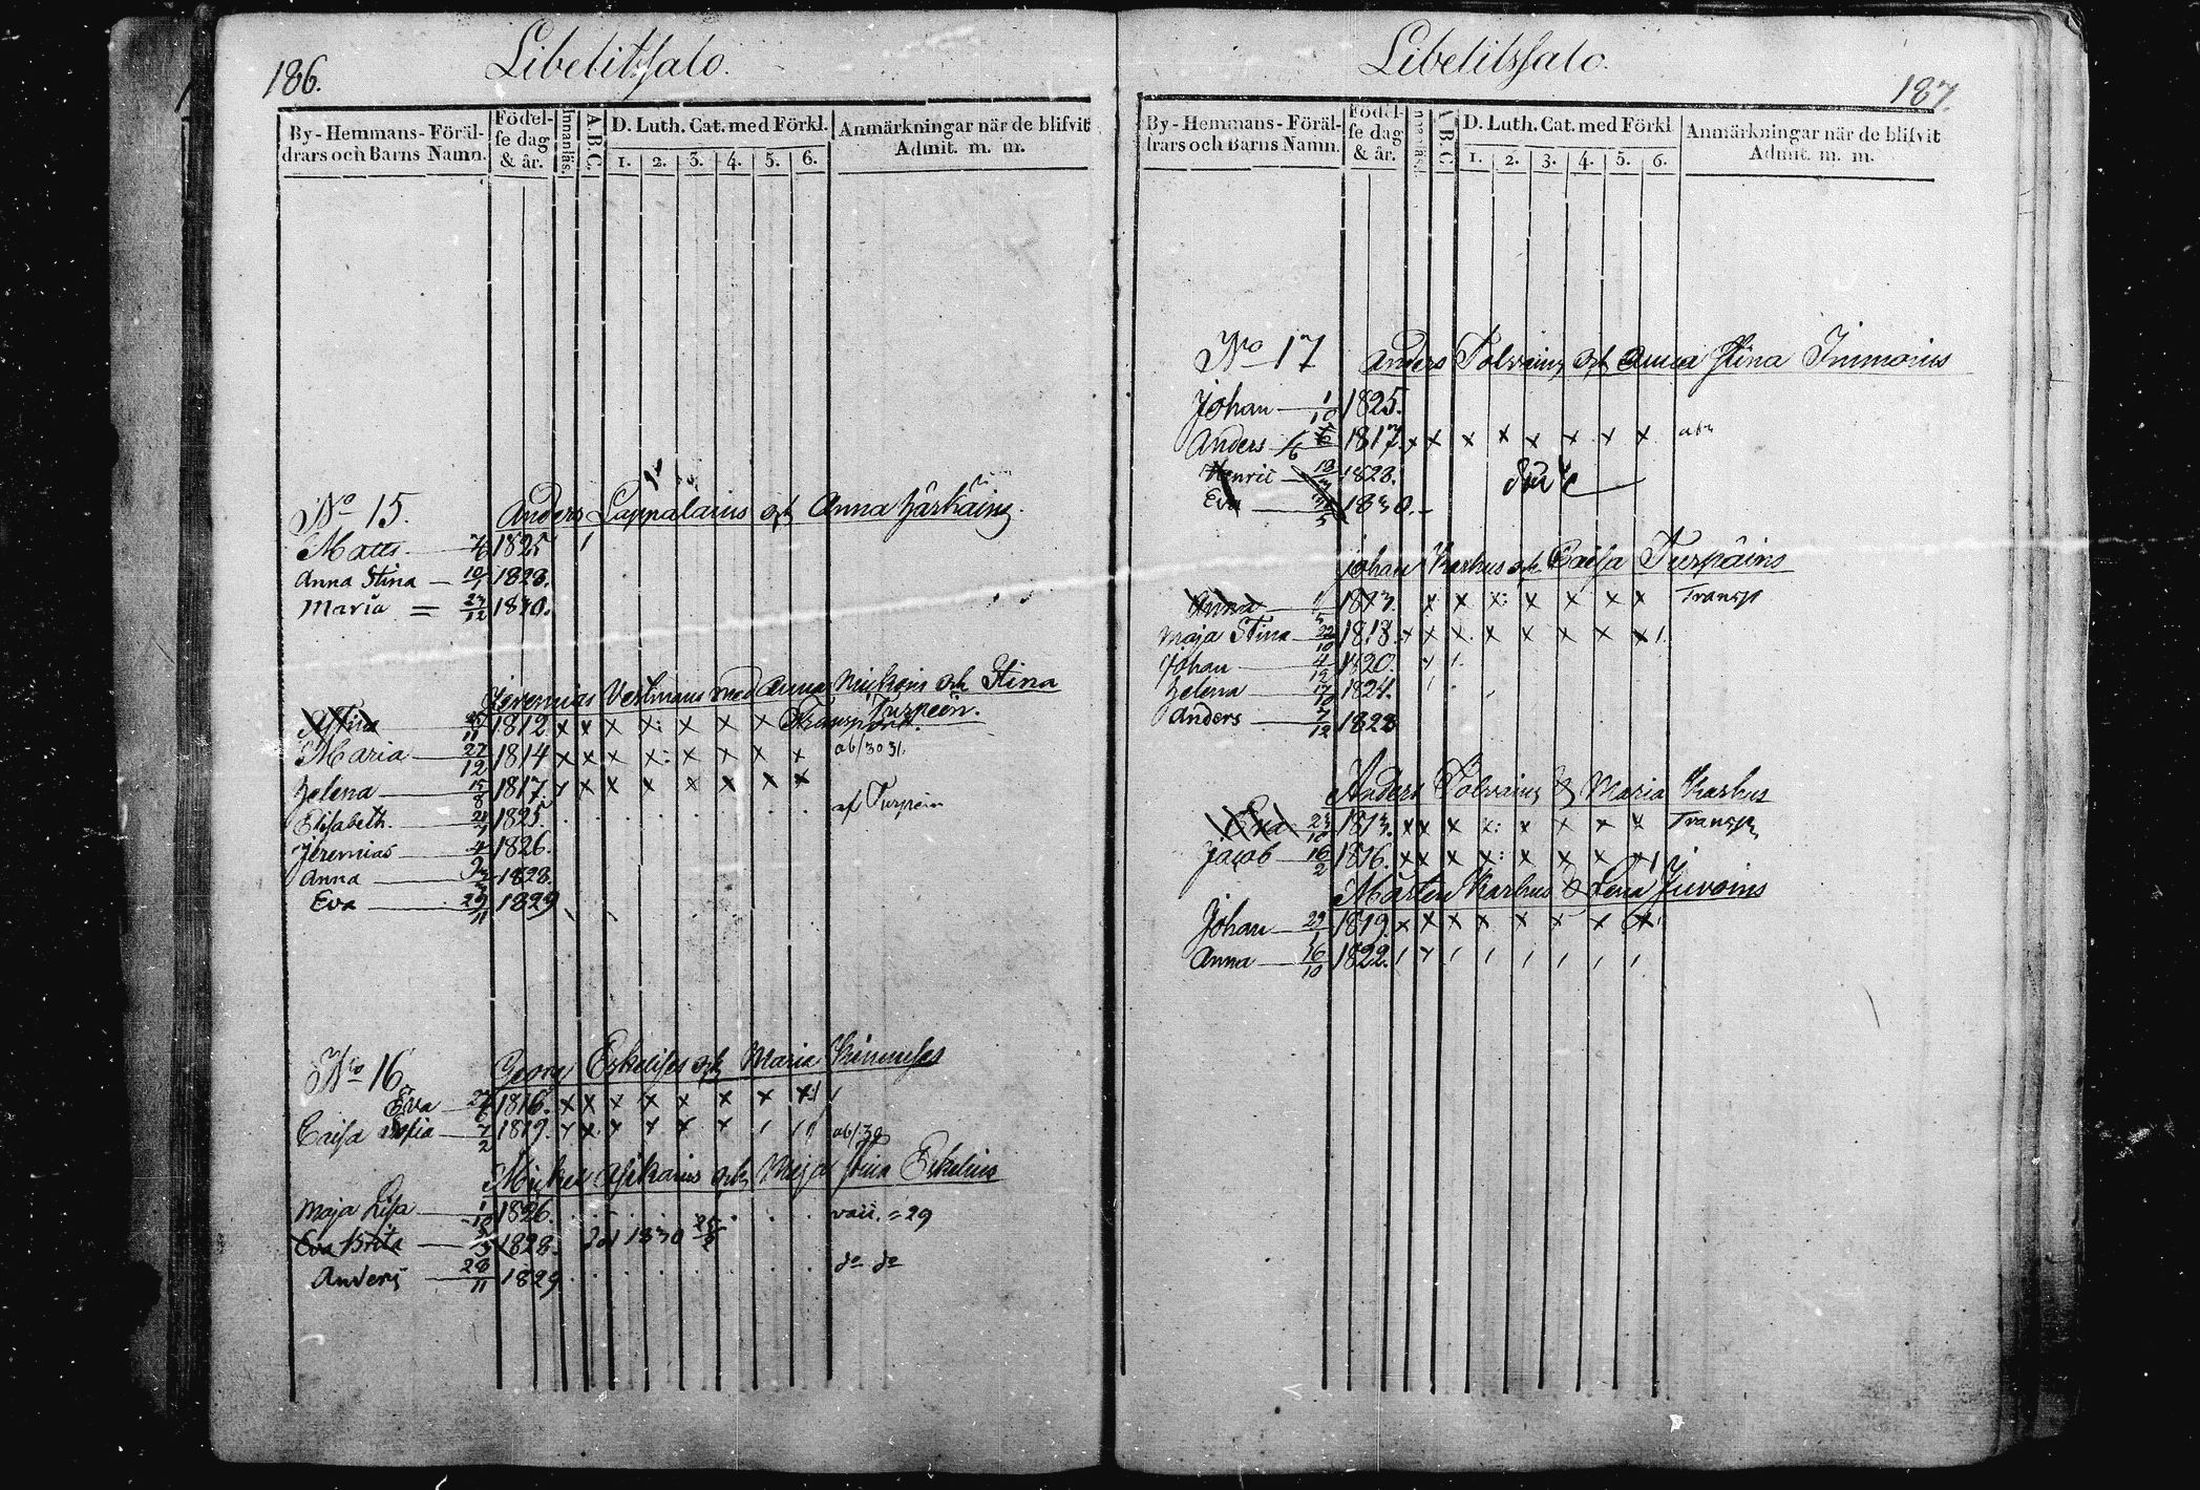 186.
Libelitssalo.
By-Hemmans-Föräl-
drars och Barns Namn.
Födel-
se dag
& år.
Innanläs.
A.B.C.
D. Luth. Cat. med Förkl.
1. 2. 3. 4. 5. 6.
Anmärkningar när de blifvit
Admit. m. m.
No 15. Anders Lappalains och Anna
Matts 1825
Anna Stina 10/1 1828.
Maria 23/12 1830.
Jeremias med Anna och Stina
Turpein.
Stina 11 1812 x x x x: x x x Transport.
Maria 27/12 1814 x x x x: x x x x ab/30 31.
Helena 15/8 1817. x x x x x x x x
Elisabeth. 21/1 1825. af Turpein
Jeremias 4 1826.
Anna 1828.
Eva 29/11 1829
No 16 Georg och Maria
Eva 27 1816. x x x x x x x x
Caisa Sofia 7/2 1819. x x x x x x ab/30
och Maja Stina Eskelins
Maja Lisa 1/10 1826. = 29
Eva Brita 1828. död 1830 25/2
Anders 28/11 1829 do do
187.
Libelitssalo.
By-Hemmans-Föräl-
drars och Barns Namn.
Födel-
se dag
& år.
Innanläs.
A.B.C.
D. Luth. Cat. med Förkl.
1. 2. 3. 4. 5. 6.
Anmärkningar när de blifvit
Admit. m. m.
No 17 Anders Tolvains och Anna Stina Immoins
Johan 1/10 1825.
Anders 1817. x x x x x x x x
Henric 1828.
Eva 1830.
Johan Karhus och Caisa Turpains
Anna 1813. x x x: x x x x Transp
Maja Stina 22/10 1818. x x x x x x x x
Johan 4/12 1820.
Helena 17/10 1824.
Anders 7/12 1828
Anders Tolvains & Maria Karhus
Eva 23/10 1813. x x x x: x x x x Transp
Jacob 16/2 1816. x x x x: x x x x
Mårten Karhus & Lena Juvoins
Johan 29/1 1819. x x x x x x x x
Anna 16/10 1822.